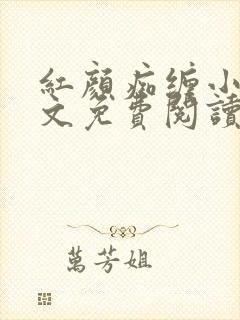 紅顏痴缠小
文免費閱讀
萬芳姐